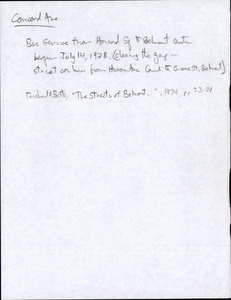 Concord Ave
Bus Service from Harvard Sq to Belmont Center
began July 14, 1928. (closing the gap —
street car line from Huron Ave Camb. to Grove St, Belmont)
Richard Betts, "The Streets of Belmont..", 1974, p. 23-24